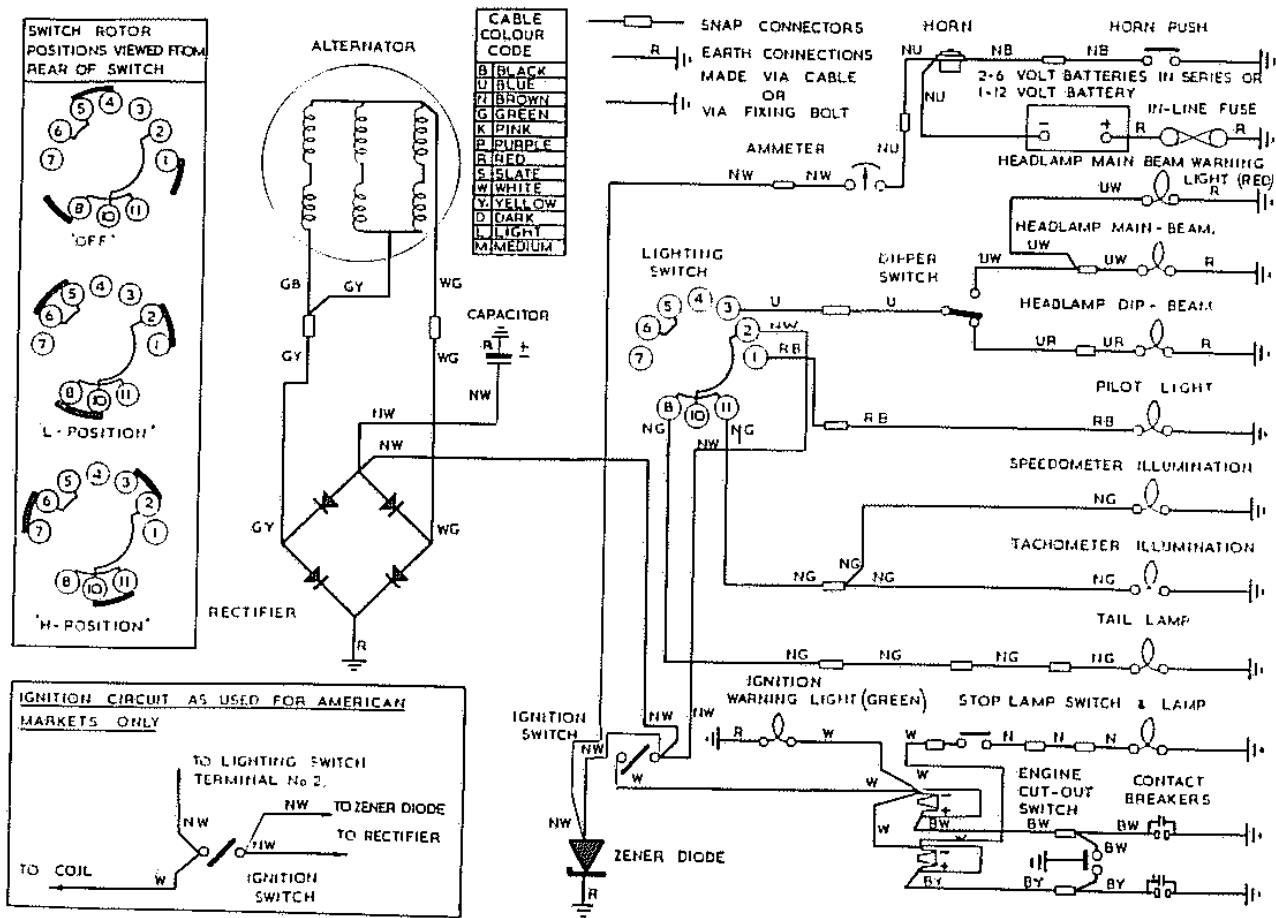 SWITCH ROTOR
POSITIONS VIEWED FROM
REAR OF SWITCH
5
4
3
6
2
7
1
8
10
11
'OFF'
5
4
3
6
2
7
1
8
10
11
'L-POSITION'
5
4
3
6
2
7
1
8
10
11
'H-POSITION'
ALTERNATOR
GB
GY
WG
GY
WG
GY
WG
CAPACITOR
R
±
NW
NW
NW
RECTIFIER
R
CABLE
COLOUR
CODE
B BLACK
U BLUE
N BROWN
G GREEN
K PINK
P PURPLE
R RED
S SLATE
W WHITE
Y YELLOW
D DARK
L LIGHT
M MEDIUM
SNAP CONNECTORS
R
EARTH CONNECTIONS
MADE VIA CABLE
OR
VIA FIXING BOLT
HORN
HORN PUSH
NU
NB
NB
2-6 VOLT BATTERIES IN SERIES OR
1-12 VOLT BATTERY
NU
IN-LINE FUSE
-
+
R
R
AMMETER
NU
NW
NW
HEADLAMP MAIN BEAM WARNING
LIGHT (RED)
UW
R
HEADLAMP MAIN-BEAM.
UW
UW
UW
R
LIGHTING
SWITCH
DIPPER
SWITCH
HEADLAMP DIP-BEAM
5
4
3
6
2
7
1
8
10
11
U
U
NW
RB
UR
UR
R
PILOT LIGHT
RB
RB
NG
NG
NW
SPEEDOMETER ILLUMINATION
NG
TACHOMETER ILLUMINATION
NG
NG
NG
NG
TAIL LAMP
NG
NG
NG
NG
IGNITION
WARNING LIGHT (GREEN)
STOP LAMP SWITCH & LAMP
IGNITION
SWITCH
NW
NW
NW
R
W
W
W
W
N
N
ENGINE
CUT-OUT
SWITCH
CONTACT
BREAKERS
W
W
-
+
BW
BW
BW
W
-
+
BY
BY
BY
NW
ZENER DIODE
R
IGNITION CIRCUIT AS USED FOR AMERICAN
MARKETS ONLY
TO LIGHTING SWITCH
TERMINAL No 2.
NW
NW
TO ZENER DIODE
TO RECTIFIER
NW
TO COIL
W
IGNITION
SWITCH